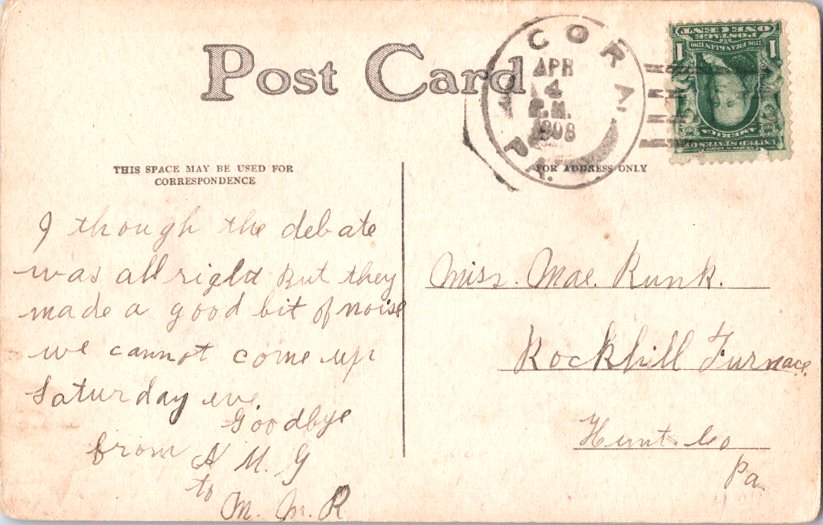 Post Card
CORA,
APR
4
P.M.
1908
PA.
THIS SPACE MAY BE USED FOR
CORRESPONDENCE
FOR ADDRESS ONLY
I though the debate
was all right but they
made a good bit of noise
we cannot come up
Saturday eve.
Goodbye
from A M. G
to M. M. R
Miss. Mae. Runk.
Rockhill Furnace.
Hunt. Co
Pa
ONE CENT
POSTAGE
1 FRANKLIN 1
UNITED STATES OF
AMERICA